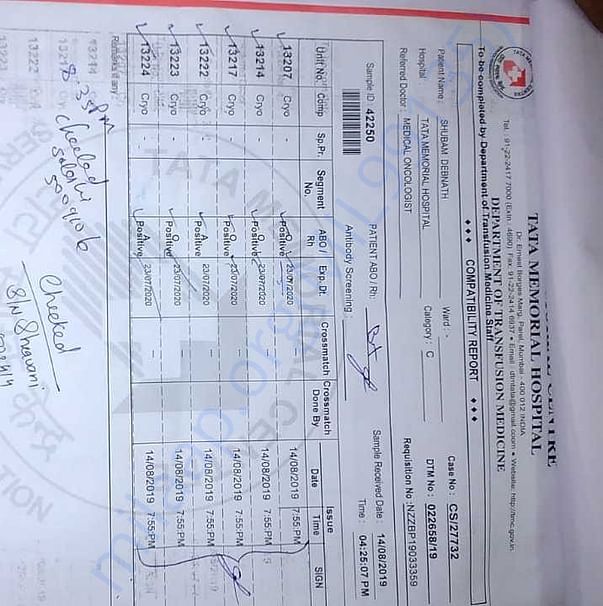 TATA MEMORIAL CENTRE
TATA MEMORIAL HOSPITAL
Dr. Ernest Borges Marg, Parel, Mumbai - 400 012 INDIA
Tel.: 91-22-2417 7000 (Extn. 4690) Fax: 91-22-2414 6937 • Email: dtmtata@gmail.coom • Website: http://tmc.gov.in
DEPARTMENT OF TRANSFUSION MEDICINE
To be completed by Department of Transfusion Medicine Staff
COMPATIBILITY REPORT
Patient Name : SHUBAM DEBNATH Ward : - Case No : CS/27732
Hospital : TATA MEMORIAL HOSPITAL Category : C DTM No : 022658/19
Referred Doctor : MEDICAL ONCOLOGIST Requisition No : NZZBP19033359
Sample ID 42250 PATIENT ABO / Rh: B+ Sample Received Date : 14/08/2019
Antibody Screening : Time : 04:25:07 PM
Unit No. Comp Sp.Pr. Segment No. ABO / Rh Exp. Dt. Crossmatch Crossmatch Done By Issue Date Time SIGN
13207 Cryo - Positive 23/07/2020 -- 14/08/2019 7:55:PM
13214 Cryo - Positive 23/07/2020 -- 14/08/2019 7:55:PM
13217 Cryo - A Positive 23/07/2020 -- 14/08/2019 7:55:PM
13222 Cryo - A Positive 23/07/2020 -- 14/08/2019 7:55:PM
13223 Cryo - Positive 23/07/2020 -- 14/08/2019 7:55:PM
13224 Cryo - A Positive 23/07/2020 -- 14/08/2019 7:55:PM
Remarks if any
checked
Checked